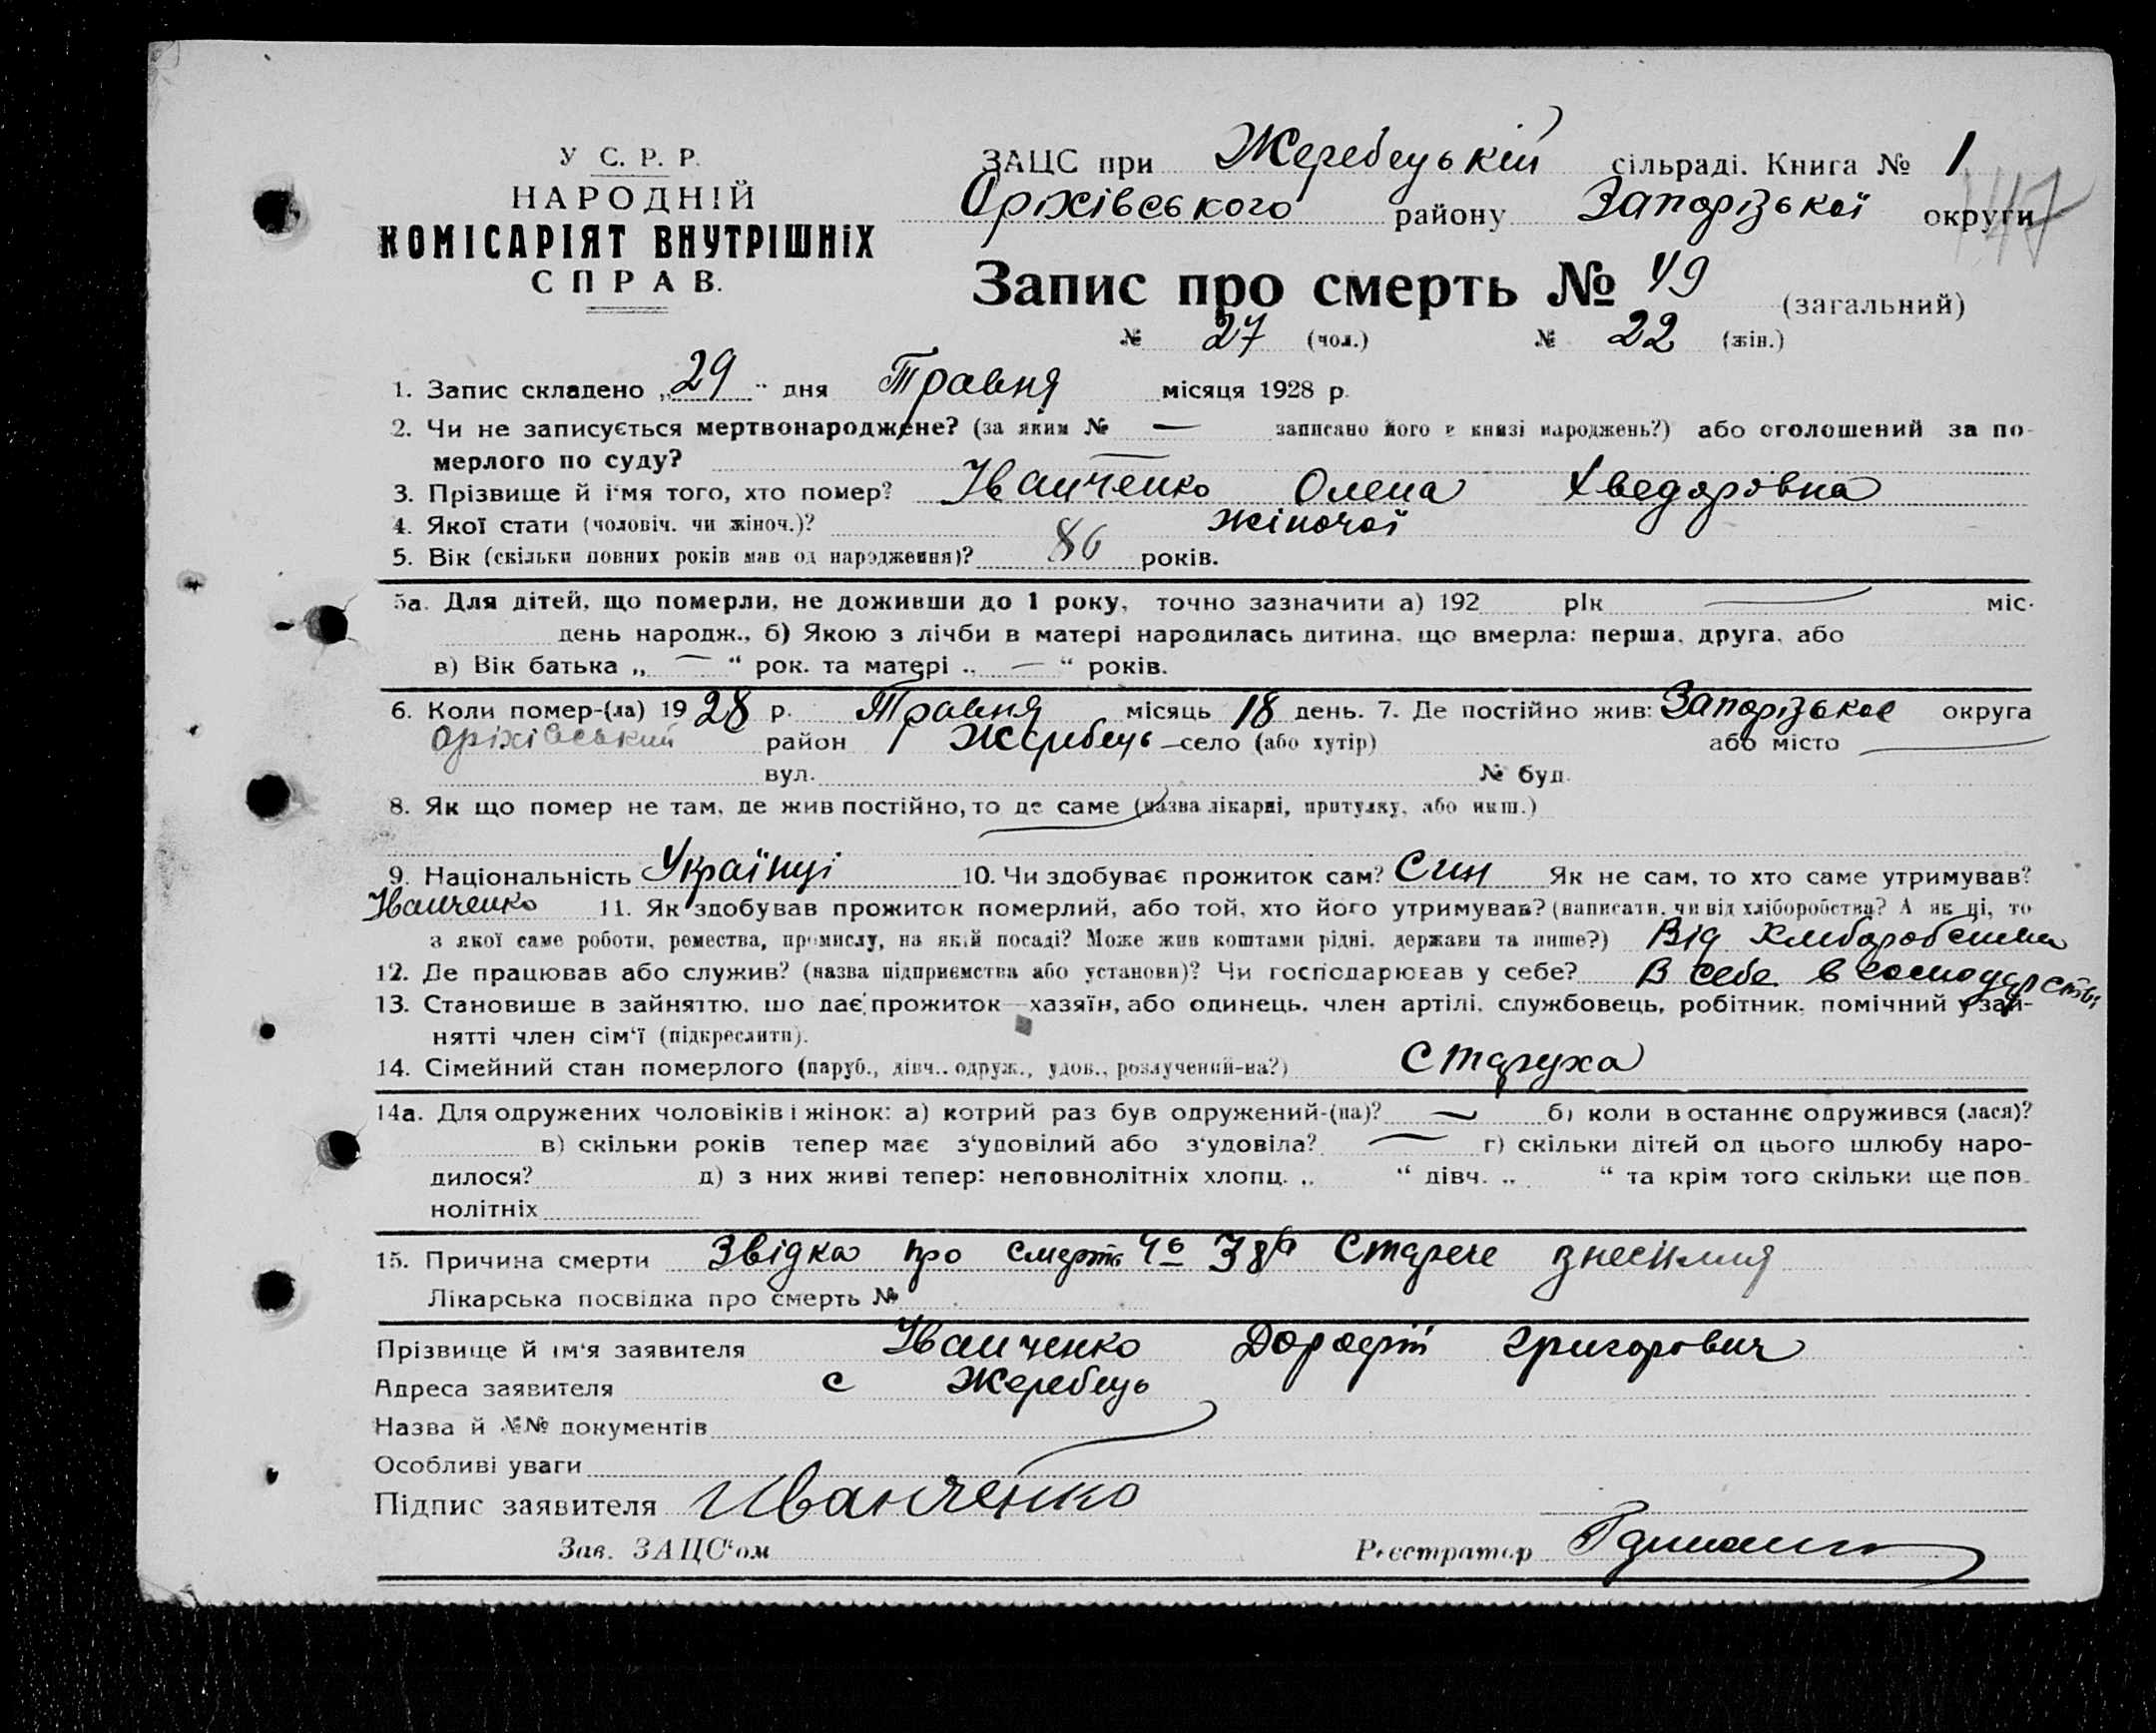 У С. Р. Р.
НАРОДНІЙ
КОМІСАРІЯТ ВНУТРІШНІХ
СПРАВ.
ЗАЦС при Жеребецькій сільраді. Книга № 1
Оріхівського району Запорізької округи
147
Запис про смерть № 49 (загальний)
№ 27 (чол.) № 22 (жін.)
1. Запис складено „29" дня Травня місяця 1928 р.
2. Чи не записується мертвонароджене? (за яким № — записано його в книзі народжень?) або оголошений за по-
мерлого по суду? —
3. Прізвище й ім'я того, хто помер? Іванченко Олена Хведоровна
4. Якої стати (чоловіч. чи жіноч.)? жіночої
5. Вік (скільки повних років мав од народження)? 86 років.
5а. Для дітей, що померли, не доживши до 1 року, точно зазначити а) 192 рік — міс.
день народж., б) Якою з лічби в матері народилась дитина, що вмерла: перша, друга, або
в) Вік батька „ — " рок. та матері „ — " років.
6. Коли помер-(ла) 1928 р. Травня місяць 18 день. 7. Де постійно жив: Запорізькое округа
Оріхівський район Жеребець село (або хутір) або місто —
вул. № буд.
8. Як що помер не там, де жив постійно, то де саме (назва лікарні, притулку, або инш.) —
9. Національність Українці 10. Чи здобуває прожиток сам? Син Як не сам, то хто саме утримував?
Іванченко 11. Як здобував прожиток померлий, або той, хто його утримував? (написати, чи від хліборобства? А як ні, то
з якої саме роботи, ремества, промислу, на якій посаді? Може жив коштами рідні, держави та инше?) Від Хліборобства
12. Де працював або служив? (назва підприємства або установи)? Чи господарював у себе? В себе в господарстві
13. Становище в зайняттю, що дає прожиток—хазяїн, або одинець, член артілі, службовець, робітник, помічний у зай-
нятті член сім'ї (підкреслити).
14. Сімейний стан померлого (паруб., дівч.. одруж., удов., розлучений-на?) Старуха
14а. Для одружених чоловіків і жінок: а) котрий раз був одружений-(на)? — б) коли в останнє одружився (лася)?
в) скільки років тепер має з'удовілий або з'удовіла? — г) скільки дітей од цього шлюбу наро-
дилося? д) з них живі тепер: неповнолітніх хлопц. „ " дівч. „ " та крім того скільки ще пов-
нолітніх
15. Причина смерти Звідка про смерть Старече знесилля
Лікарська посвідка про смерть №
Прізвище й ім'я заявителя Іванченко Дорофій Григорович
Адреса заявителя с Жеребець
Назва й №№ документів
Особливі уваги
Підпис заявителя Иванченко
Зав. ЗАЦС'ом Реєстратор